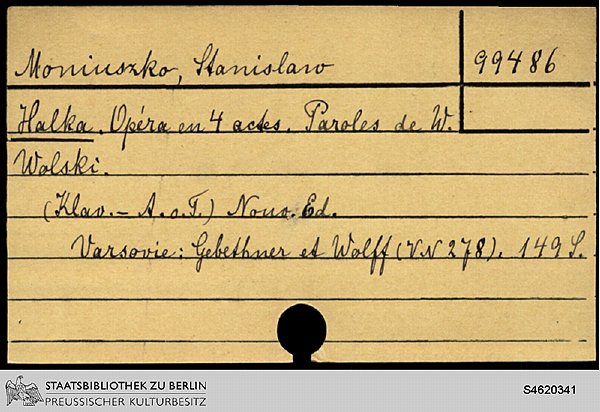 Moniuszko, Stanislaw
99486
Halka. Opéra en 4 actes. Paroles de W.
Wolski.
(Klav.- A. o. T.) Nouv. Ed.
Varsovie: Gebethner et Wolff (VN 278). 149 S.
STAATSBIBLIOTHEK ZU BERLIN
PREUSSISCHER KULTURBESITZ
S4620341